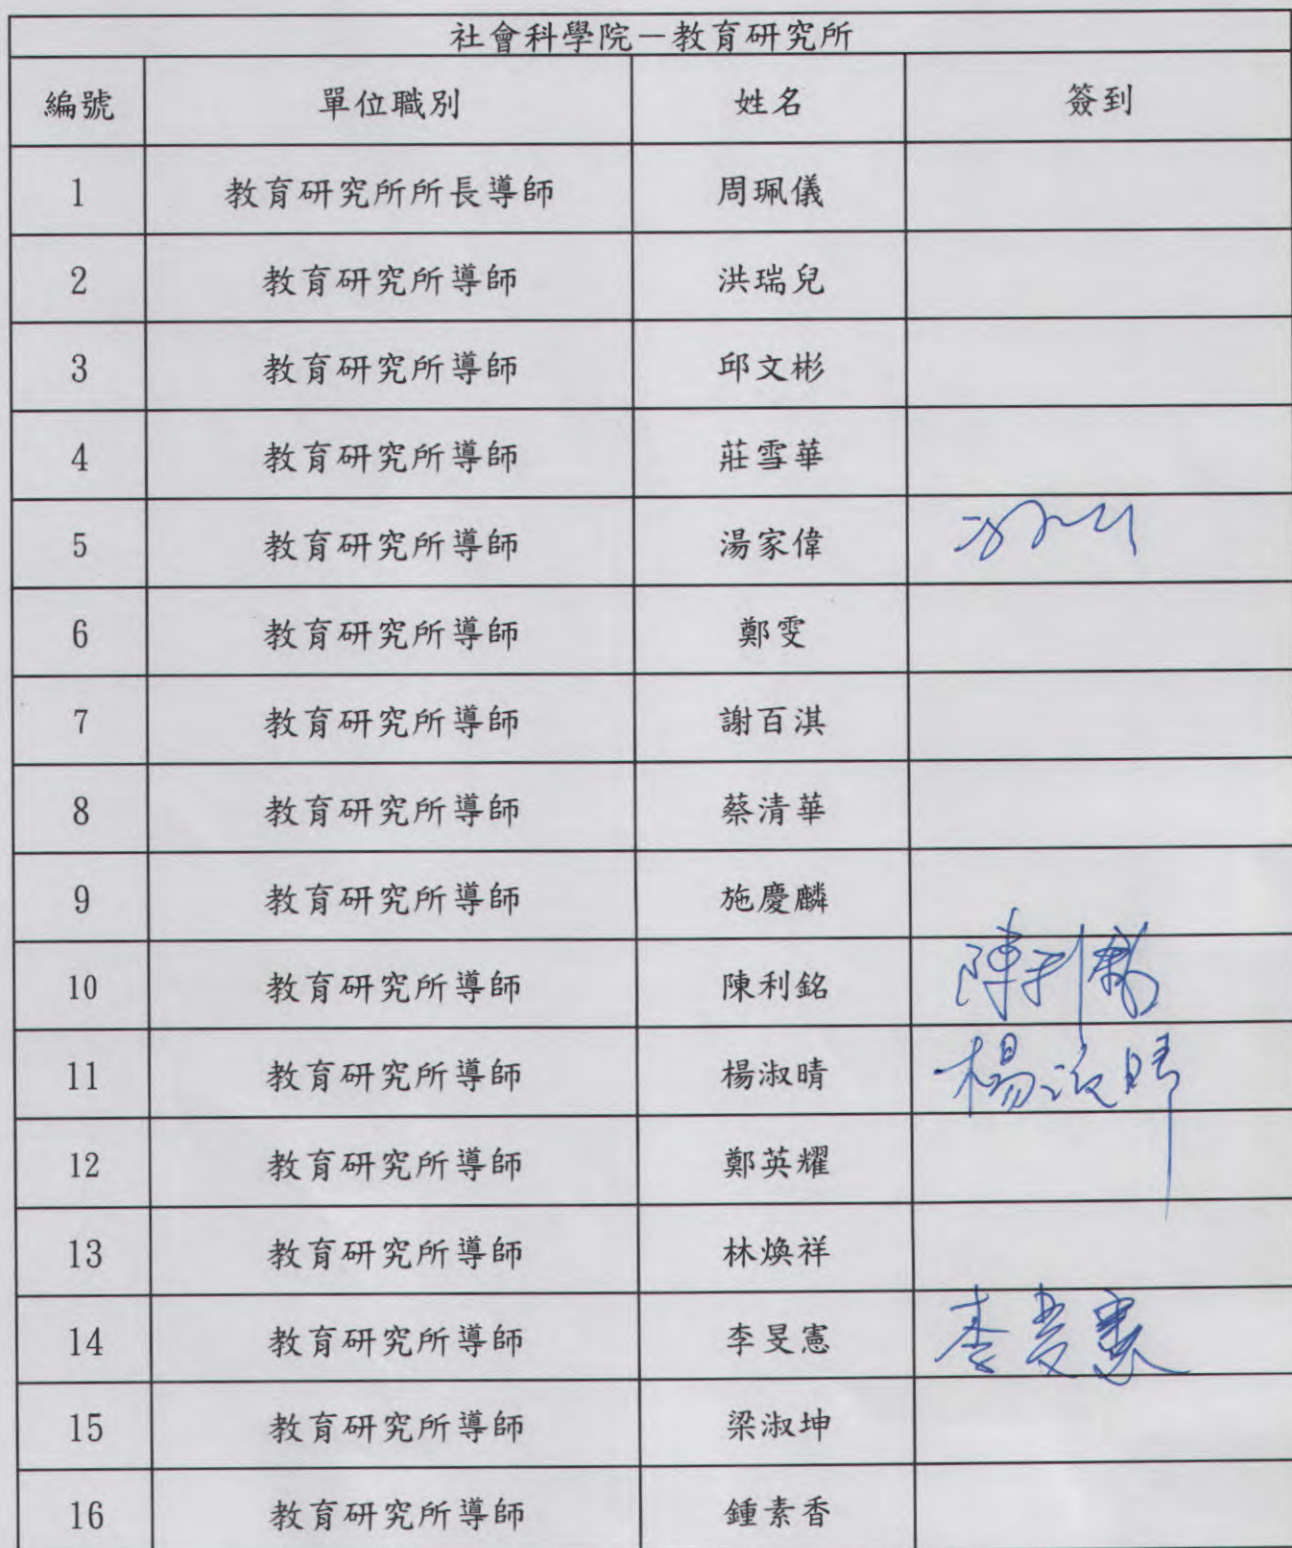 社會科學院－教育研究所
編號 單位職別 姓名 簽到
1 教育研究所所長導師 周珮儀
2 教育研究所導師 洪瑞兒
3 教育研究所導師 邱文彬
4 教育研究所導師 莊雪華
5 教育研究所導師 湯家偉
6 教育研究所導師 鄭雯
7 教育研究所導師 謝百淇
8 教育研究所導師 蔡清華
9 教育研究所導師 施慶麟
10 教育研究所導師 陳利銘 陳利銘
11 教育研究所導師 楊淑晴 楊淑晴
12 教育研究所導師 鄭英耀
13 教育研究所導師 林煥祥
14 教育研究所導師 李旻憲 李旻憲
15 教育研究所導師 梁淑坤
16 教育研究所導師 鍾素香